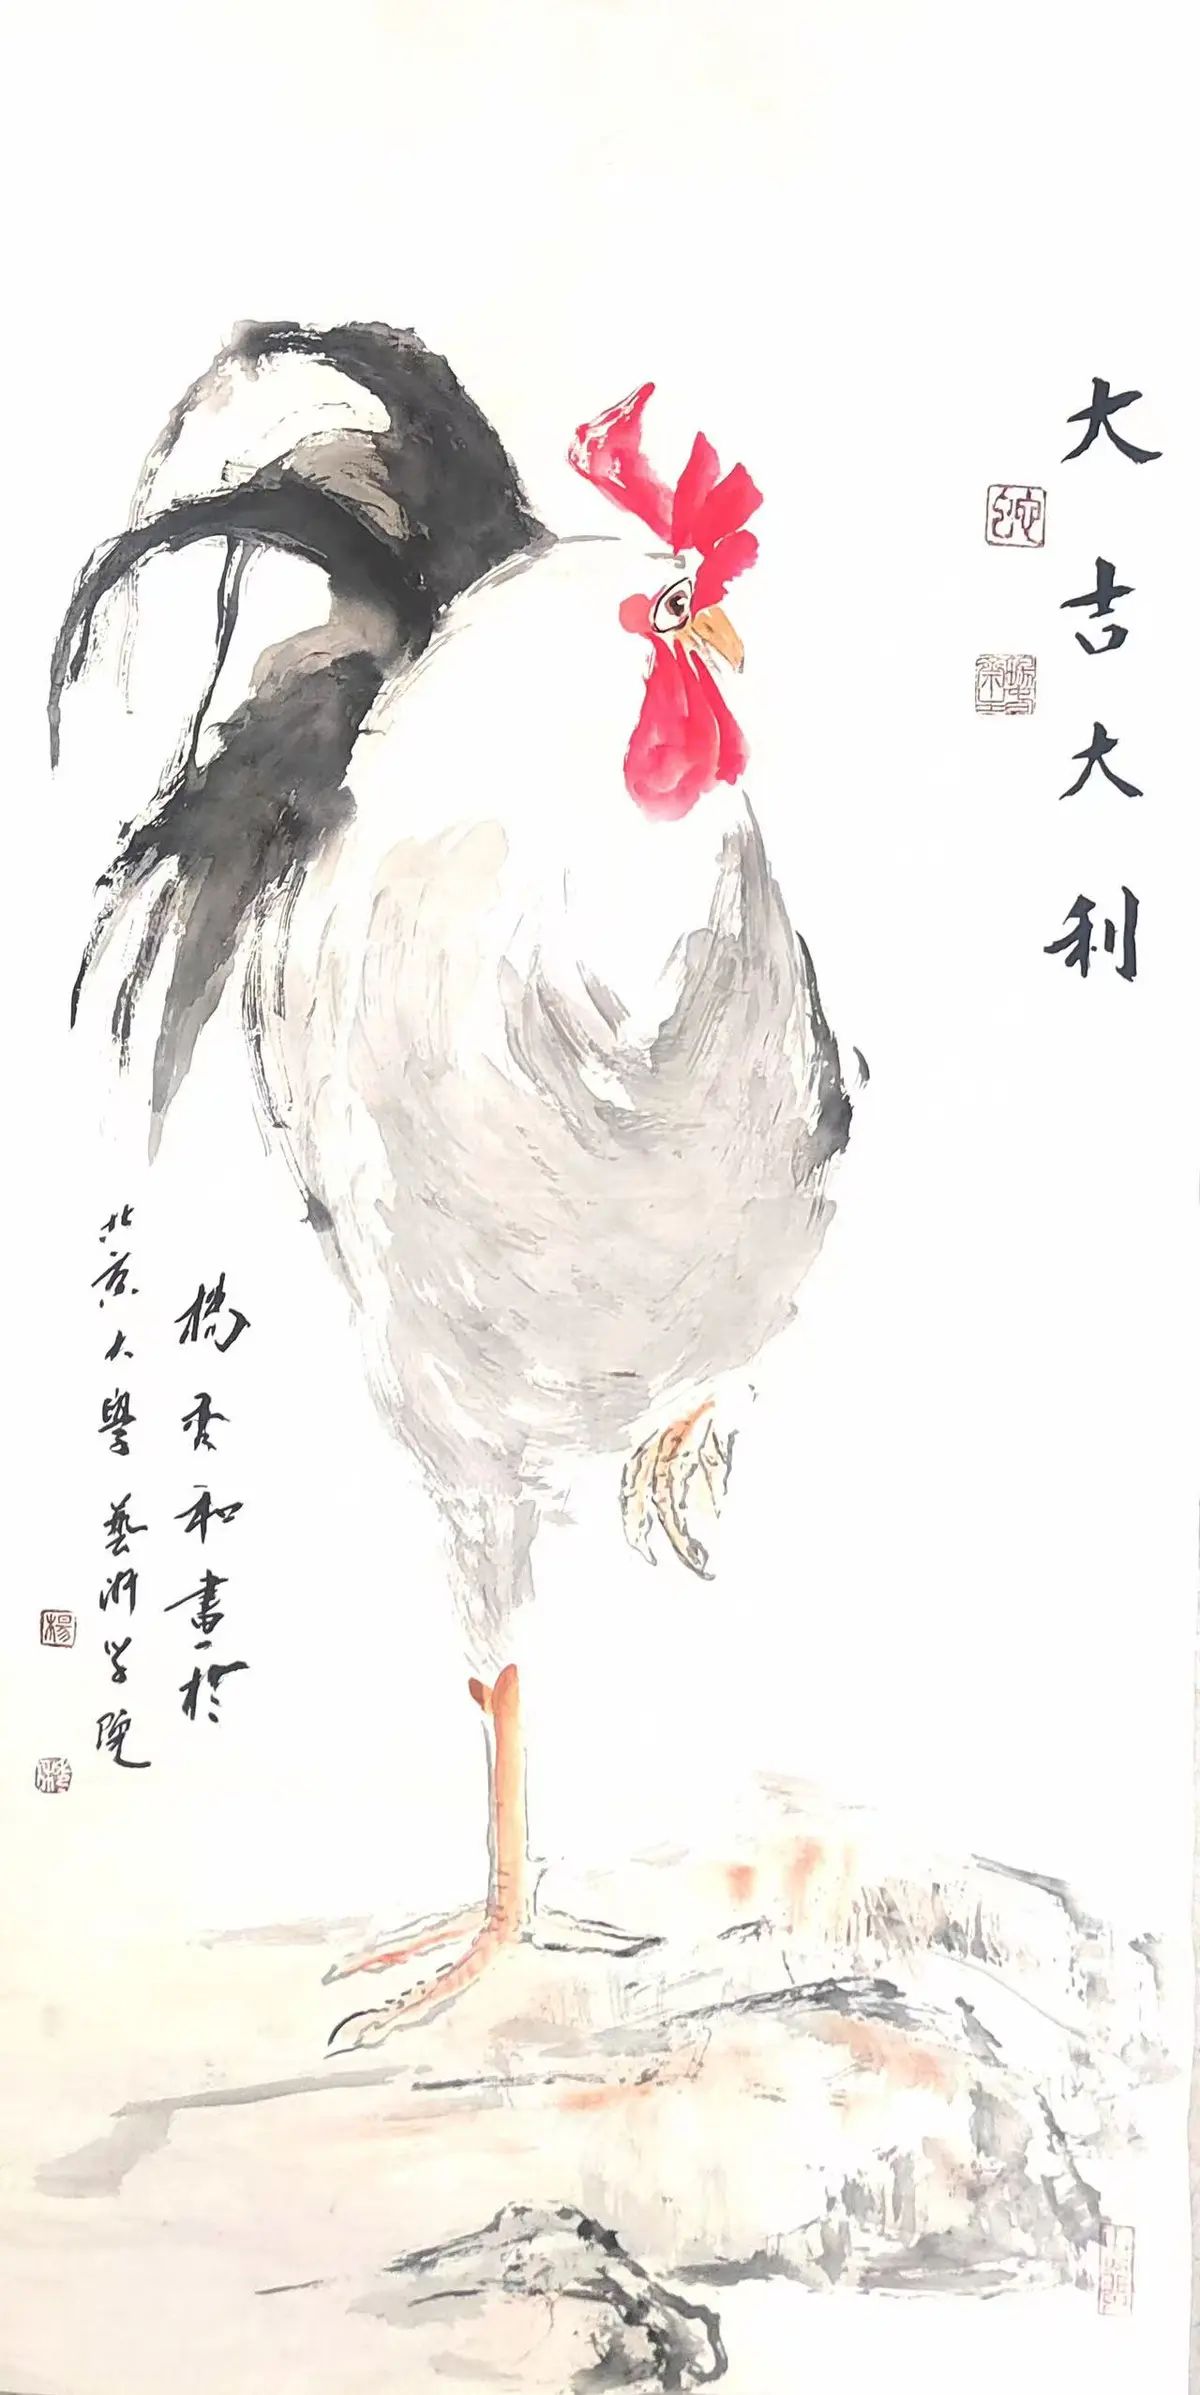 大吉大利
楊秀和書於
北京大學藝術学院
楊